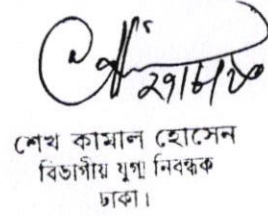 শেখ কামাল হোসেন
বিভাগীয় যুগ্ম নিবন্ধক
ঢাকা।